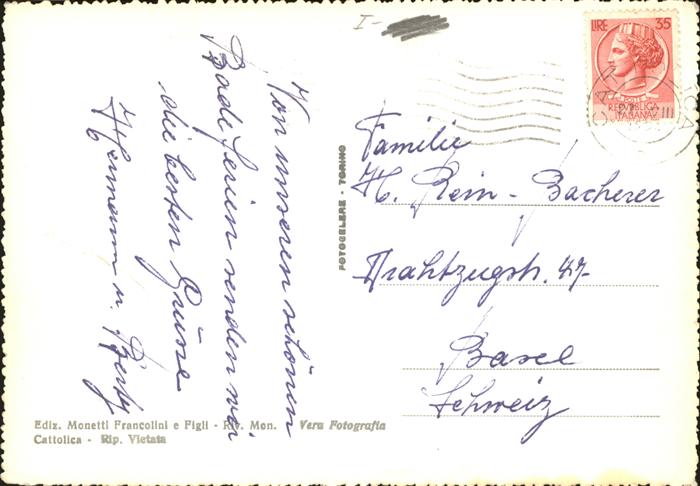 I-
LIRE 35
POSTE
REPVBBLICA
ITALIANA
Von unseren schönen
Badeferien senden wir
die besten Grüsse
Hermann u. Berty
FOTOCELERE - TORINO
Familie
H. Rein - Bacherer
Drahtzugstr. 47
Basel
Schweiz
Ediz. Monetti Francolini e Figli - Riv. Mon. Vera Fotografia
Cattolica - Rip. Vietata